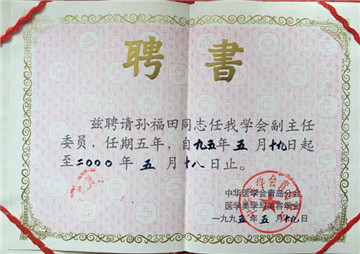 聘书
兹聘请孙福田同志任我学会副主任
委员，任期五年，自九五年五月十九日起
至二000年五月十八日止。
中华医学会青岛分会
医学美学与美容学会
一九九五年五月十九日